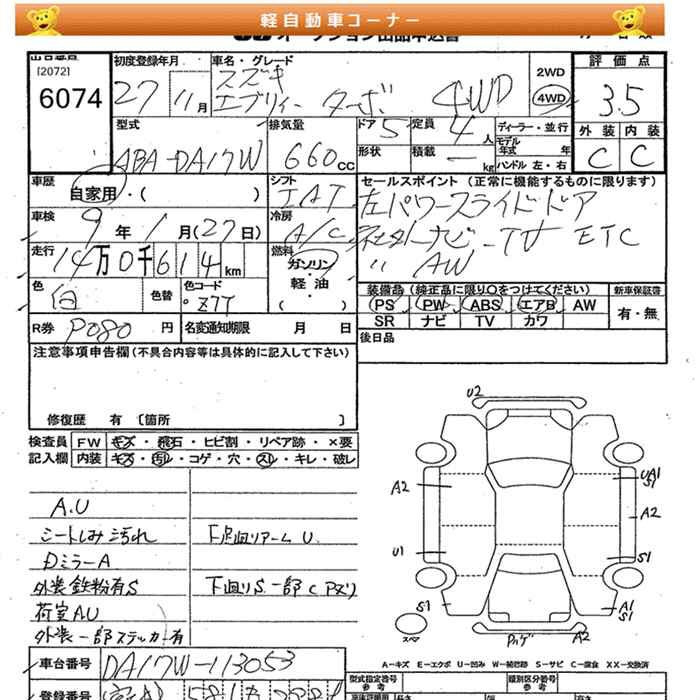 軽自動車コーナー
[2072]
6074
初度登録年月
27 11月
車名・グレード
スズキ
エブリィー ターボ 4WD
2WD
4WD
評価点
3.5
外装 内装
C C
型式
ABA-DA17W
排気量
660cc
ドア 5
定員 4人
ディーラー・並行
モデル年式 年
形状
積載 - kg
ハンドル 左・右
車歴
自家用・( )
シフト
IAT
セールスポイント (正常に機能するものに限ります)
左パワースライドドア
社外ナビ-TV ETC
〃 AW
車検
9年1月(27日)
冷房
A/C
走行
14万0千614km
燃料
ガソリン・軽油・( )
色
白
色替
色コード
Z7T
装備品 (純正品に限り○をつけてください)
新車保証書
PS PW ABS エアB AW
有・無
SR ナビ TV カワ
R券 P080 円
名変通知期限 月 日
後日品
注意事項申告欄(不具合内容等は具体的に記入して下さい)
修復歴 有 〔箇所 〕
検査員 FW キズ・飛石・ヒビ割・リペア跡・×要
記入欄 内装 キズ・汚れ・コゲ・穴・スレ・キレ・破レ
A.U
シートしみ汚れ
Dミラー A
外装鉄粉有S
荷室AU
外装一部ステッカー有
下廻りS
U2
A2
U1
S1
UA1
S1
A2
S1
A1
S1
A2
スペア
A-キズ E-エクボ U-凹み W-補修跡 S-サビ C-腐食 XX-交換済
車台番号
DA17W-113053
型式指定番号
参考
類別区分番号
参考
登録番号